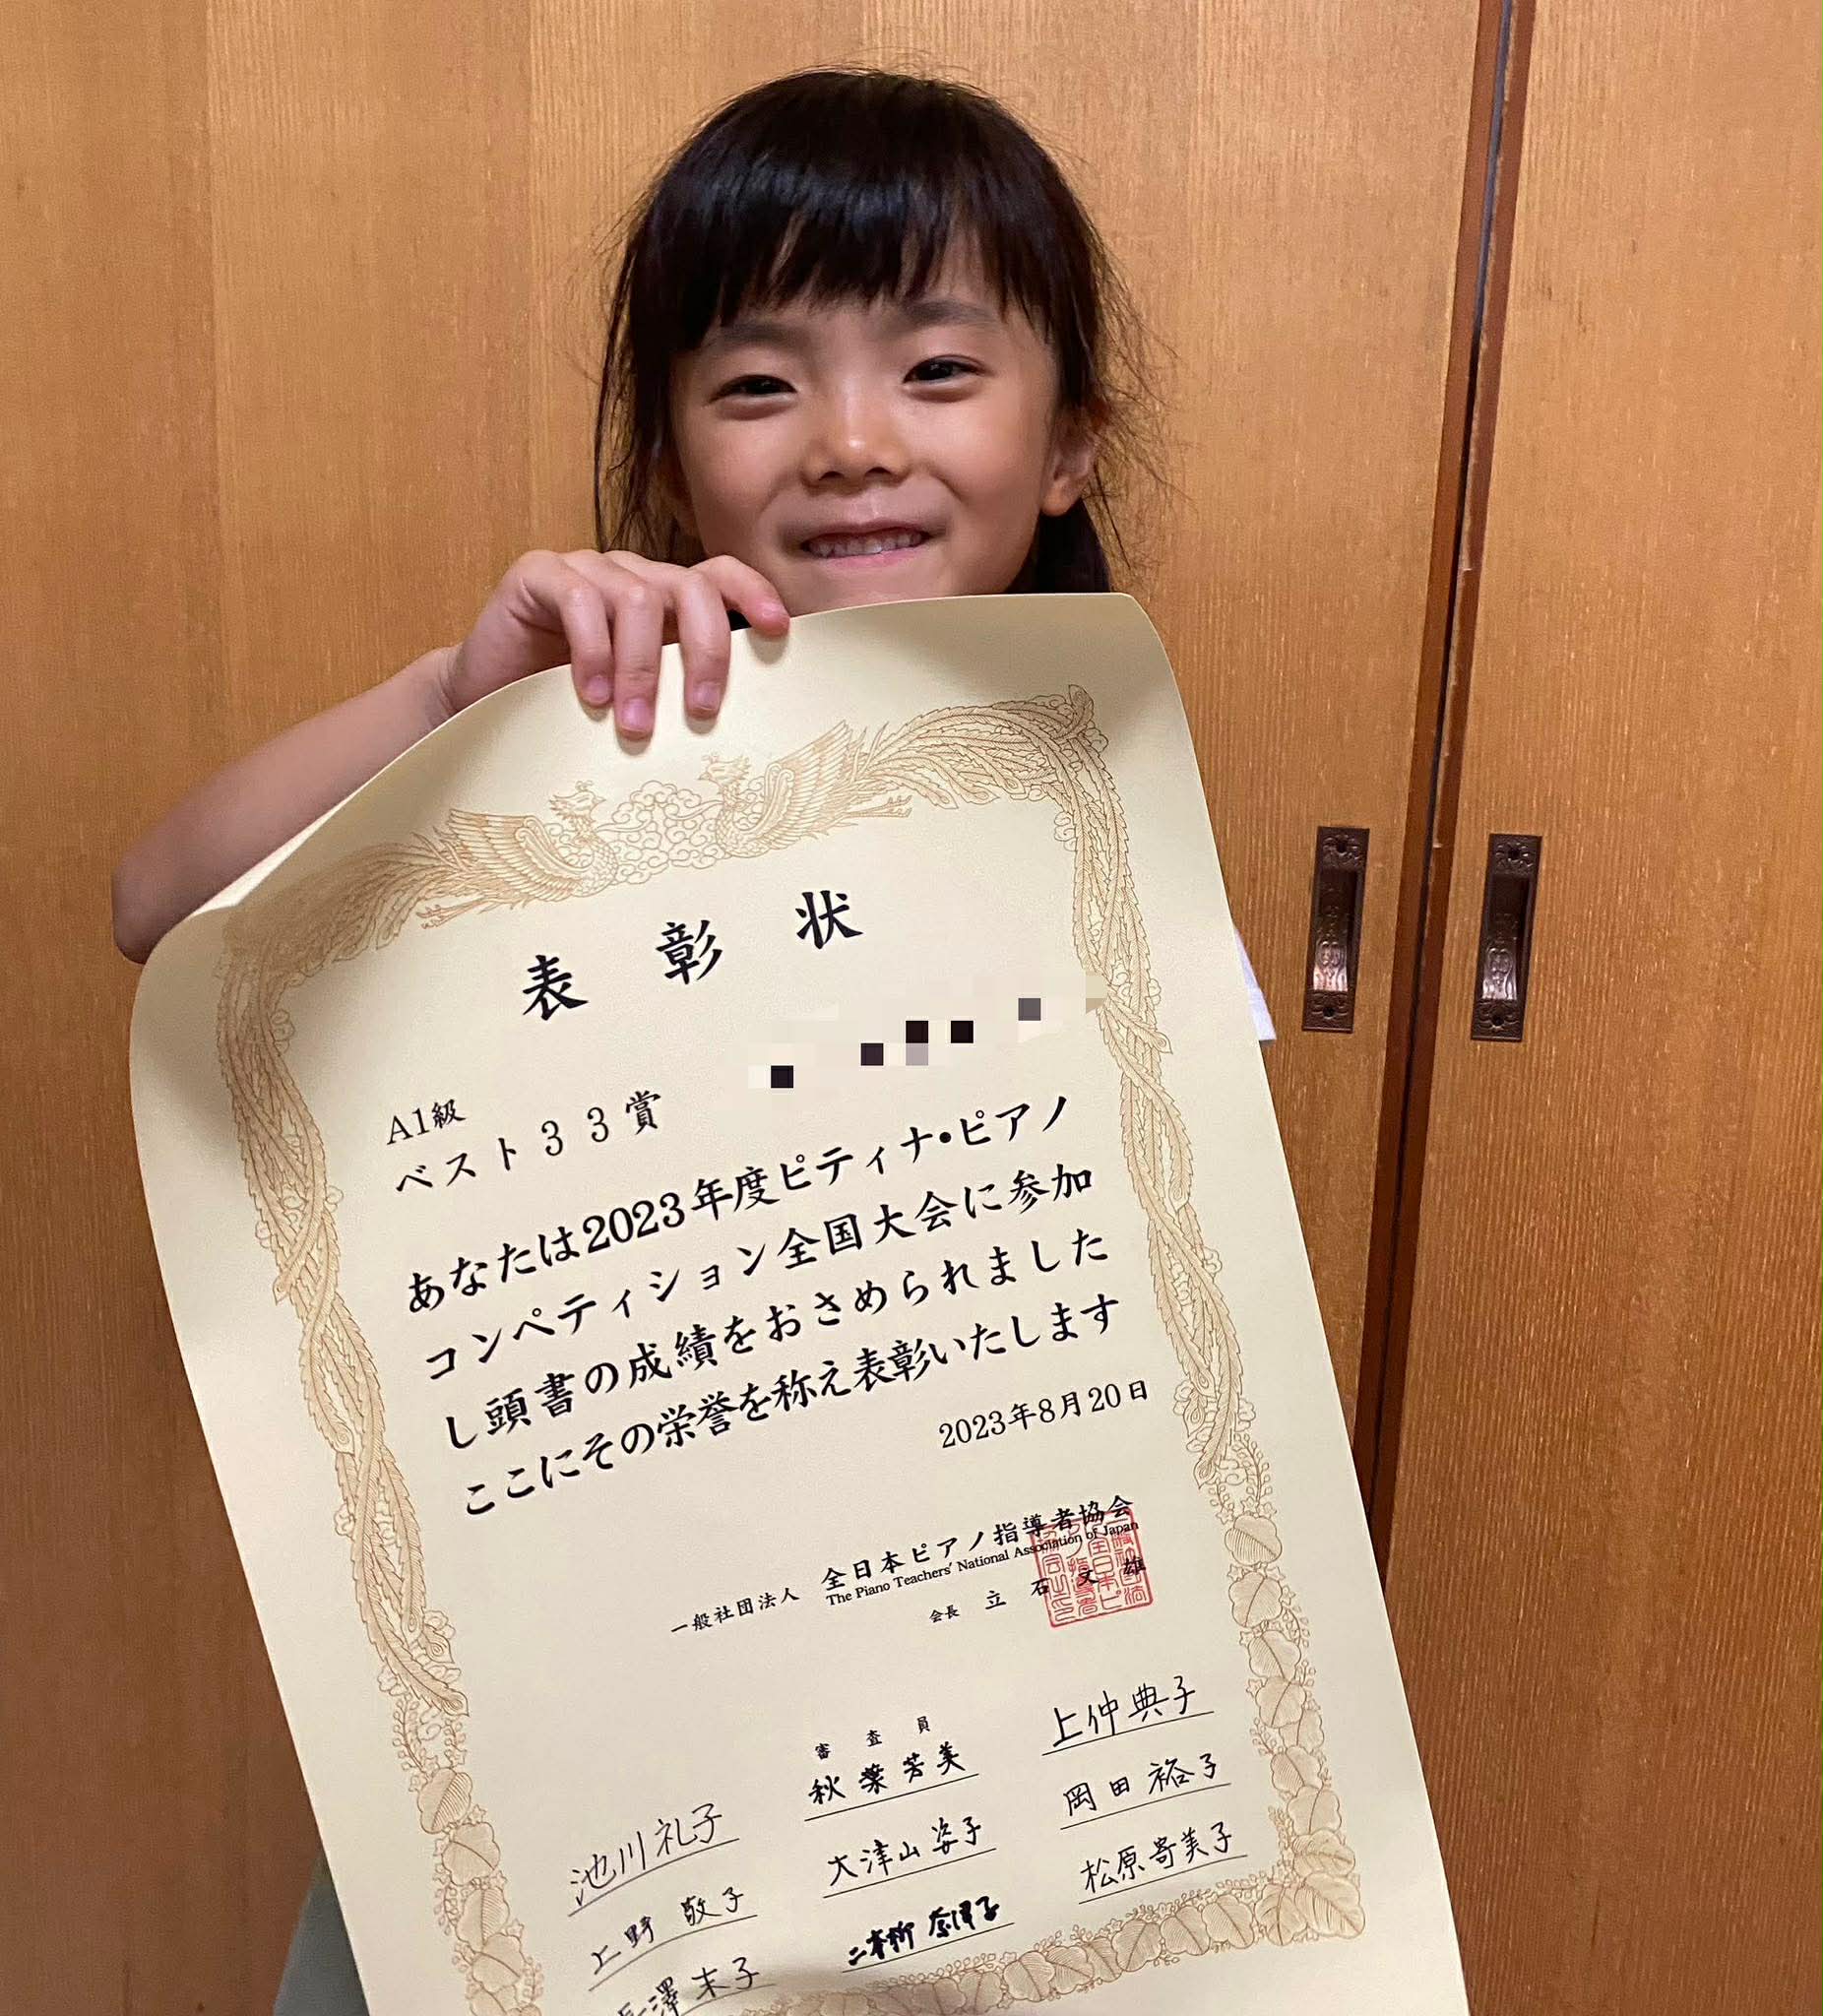 表彰状
A1級
ベスト33賞
あなたは2023年度ピティナ・ピアノ
コンペティション全国大会に参加
し頭書の成績をおさめられました
ここにその栄誉を称え表彰いたします
2023年8月20日
一般社団法人 全日本ピアノ指導者協会
The Piano Teachers' National Association of Japan
会長 立石文雄
審査員
秋葉芳美
上仲典子
池川礼子
大津山姿子
岡田裕子
上野敬子
二本柳奈津子
松原寄美子
澤末子